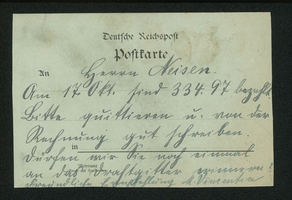 Deutsche Reichspost
Postkarte
An Herrn Neisen.
Am 17. Okt. sind 334.97 bezahlt
Bitte quittieren u. von der
Rechnung gut schreiben.
in
Dürfen wir Sie noch einmal
an das Drahtgitter erinnern!
Freundliche